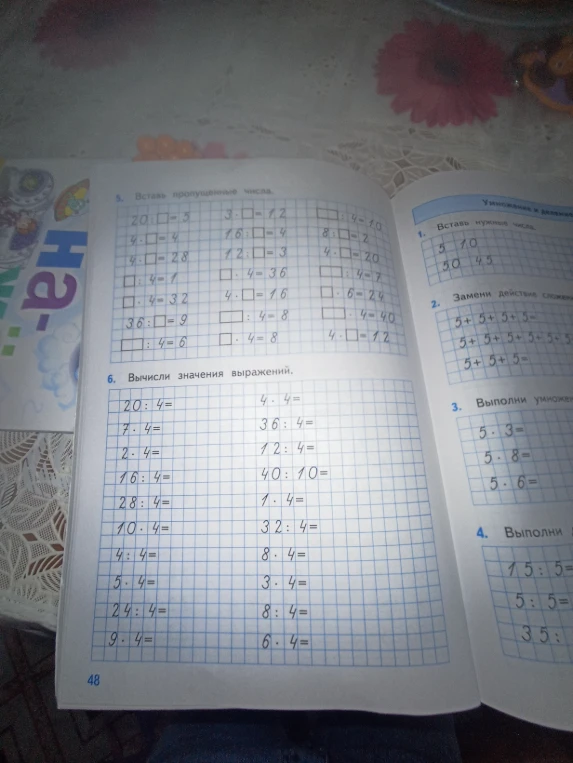 на-
5. Вставь пропущенные числа.
20 : □ = 5 3 · □ = 12 □ : 4 = 10
4 · □ = 4 16 : □ = 4 8 : □ = 2
4 · □ = 28 12 : □ = 3 4 · □ = 20
□ : 4 = 1 □ · 4 = 36 □ : 4 = 7
□ · 4 = 32 4 · □ = 16 □ · 6 = 24
36 : □ = 9 □ : 4 = 8 □ · 4 = 40
□ : 4 = 6 □ · 4 = 8 4 · □ = 12
6. Вычисли значения выражений.
20 : 4 = 4 · 4 =
7 · 4 = 36 : 4 =
2 · 4 = 12 : 4 =
16 : 4 = 40 : 10 =
28 : 4 = 1 · 4 =
10 · 4 = 32 : 4 =
4 : 4 = 8 · 4 =
5 · 4 = 3 · 4 =
24 : 4 = 8 : 4 =
9 · 4 = 6 · 4 =
48
Умножение и
1. Вставь нужные числа.
5 10
50 45
2. Замени действие
5 + 5 + 5 + 5 =
5 + 5 + 5 + 5 + 5 + 5
5 + 5 + 5 =
3. Выполни
5 · 3 =
5 · 8 =
5 · 6 =
4. Выполни
15 : 5 =
5 : 5 =
35 :